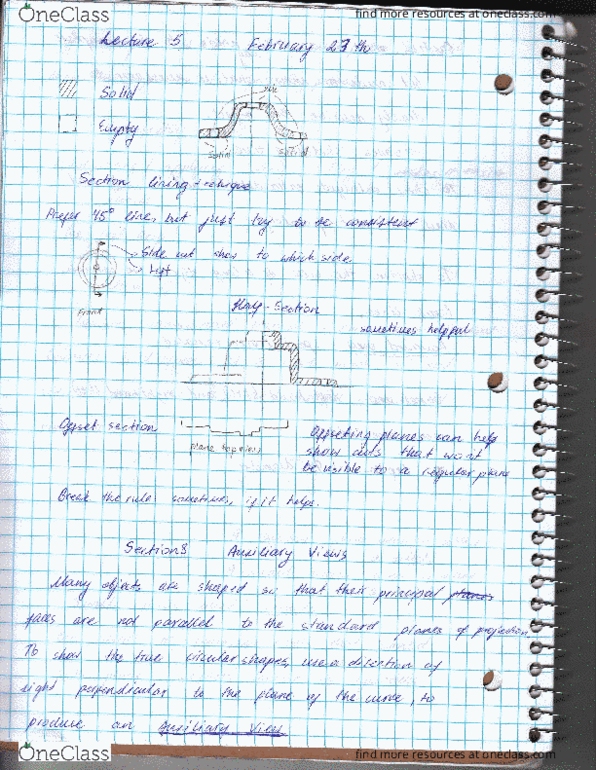 OneClass
find more resources at oneclass.com
Lecture 5 February 27th
Solid
Empty
Solid Solid
Section lining technique
Prefer 45° line, but just try to be consistent
Side cut show to which side
Left
Front
Half-Section
sometimes helpful
Offset section
plane top view
Offseting planes can help
show cuts that won't
be visible to a regular plane
Break the rules sometimes, if it helps.
Section 8 Auxiliary Views
Many objects are shaped so that their principal planes
faces are not parallel to the standard planes of projection.
To show the true circular shapes, use a direction of
sight perpendicular to the plane of the curve, to
produce an Auxiliary View
OneClass
find more resources at oneclass.com